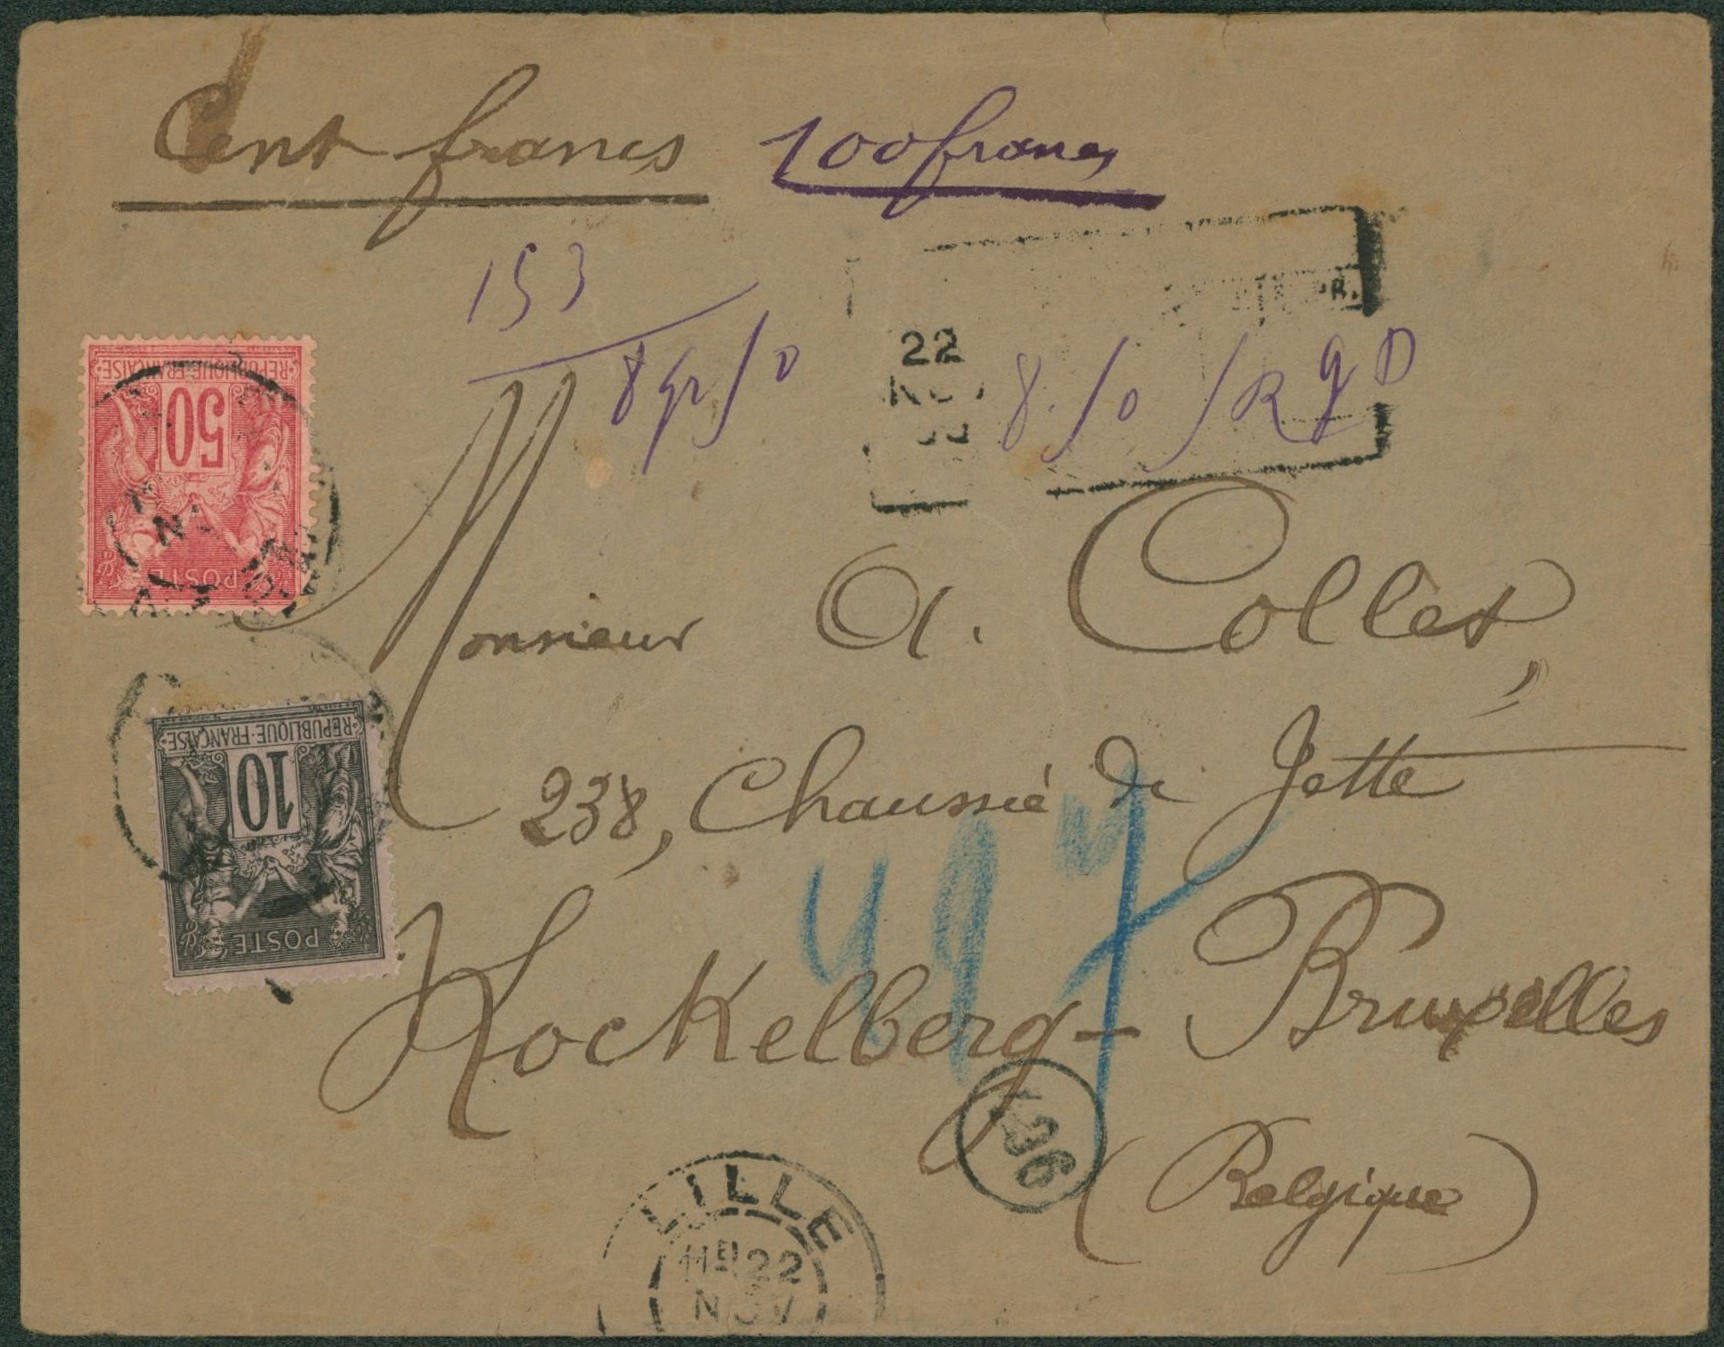 Cent francs 100 francs
153
8 gr / 0
22
NOV
8. / 0 / R g D
REPUBLIQUE FRANÇAISE
50
POSTE
Monsieur A. Collet,
238, Chaussée de Jette
REPUBLIQUE FRANÇAISE
10
POSTE
497
Kockelberg - Bruxelles
236
(Belgique)
LILLE
22
NOV